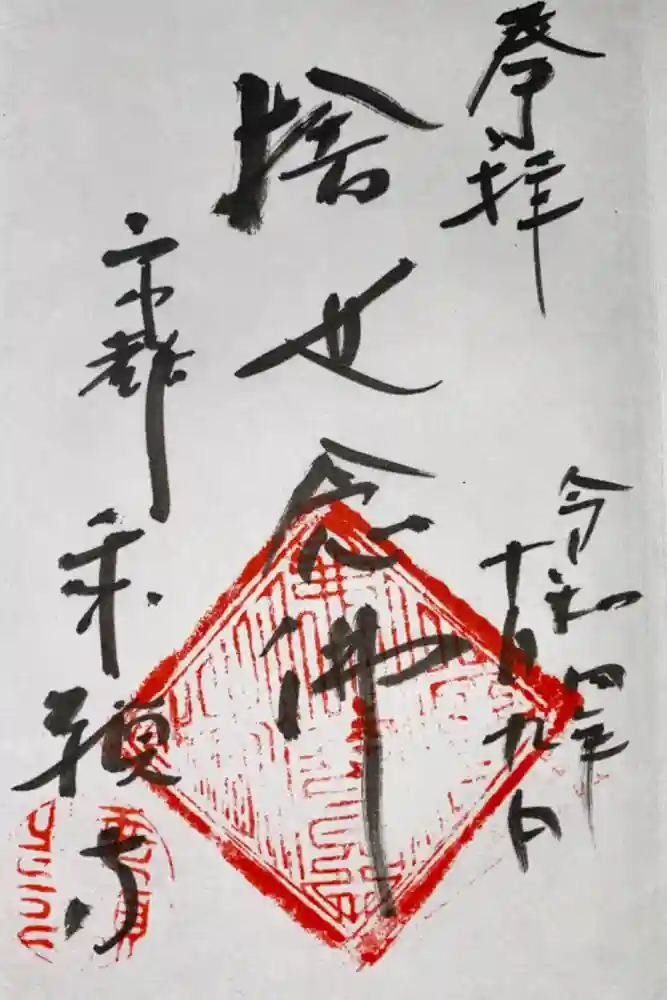 奉拝
令和四年
十月九日
捨世念佛
京都乗願寺